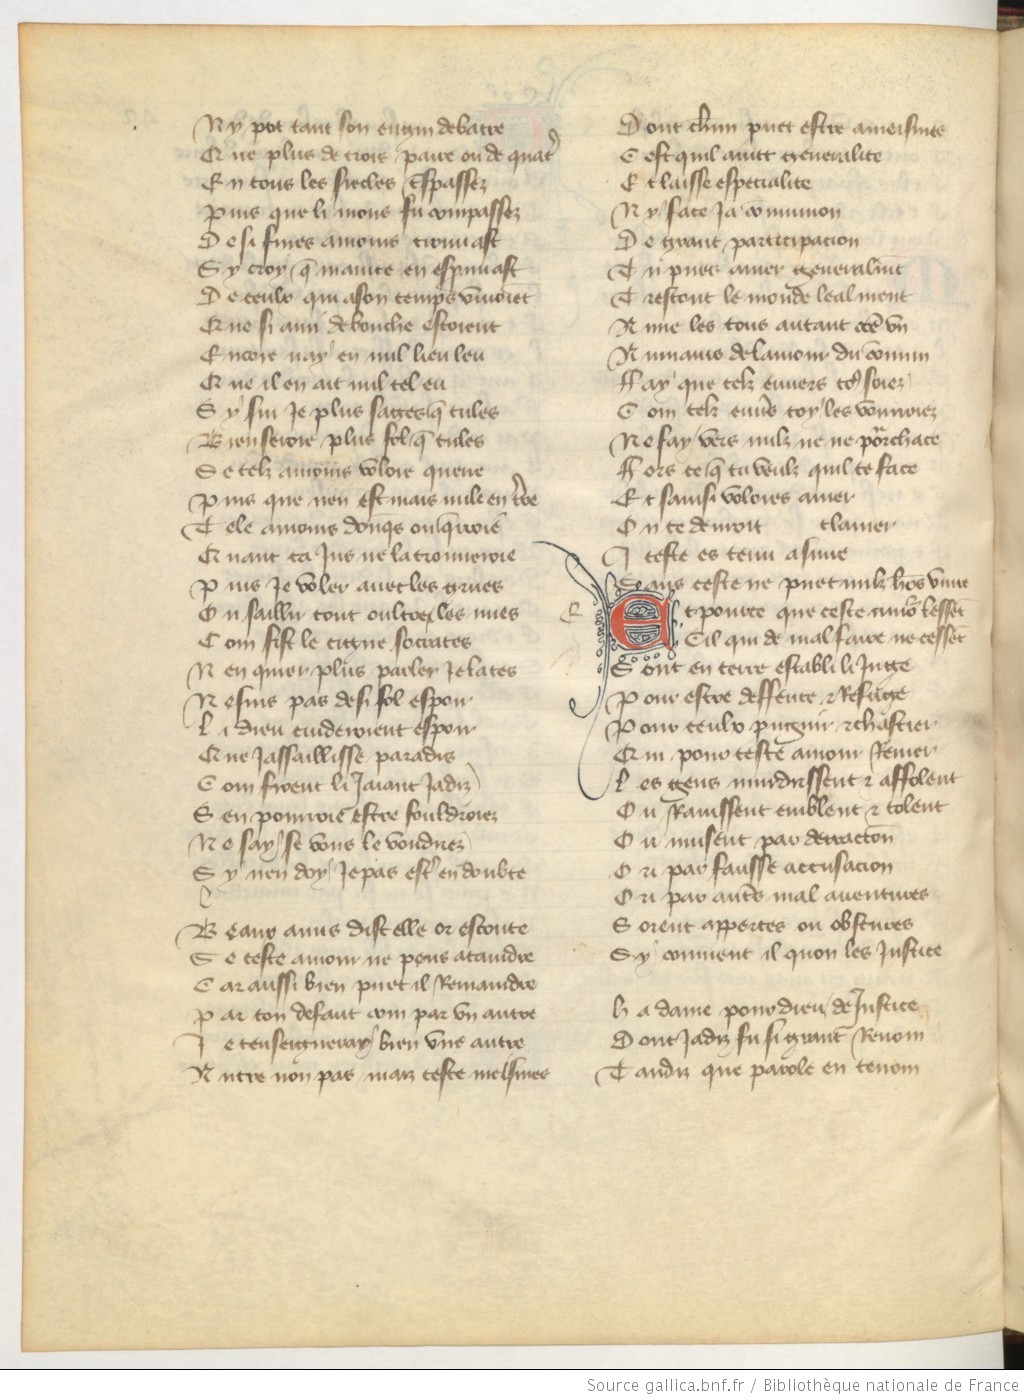 N y pot tant son engin debatre
Q ue plus de trois paire ou de quat'
E n tous les siecles t̃spassez
P uis que li mons fu compassez
D e si fines amours trouuast
S y croy q̃ mainte en esprouuast
D e ceulx qui a son temps viuoiẽt
Q ue si ami de bouche estoient
E ncore nay en nul lieu leu
Q ue il en ait nul tel eu
S y sui Je plus saiges q̃ tules
B ien seroie plus fol q̃ tules
S e telz amours voloie querre
P uis que nen est mais nulle en t're
T ele amours donq̃s ou q̃rroiẽ
Q uant ca Jus ne la trouueroie
P uis Je voler auec les grues
O u saillir tout oultre les nues
C om fist le cigne socrates
N en quier plus parler Je lates
N e suis pas de si fol espoir
L i dieu cuideroient espoir
Q ue Jassaillisse paradis
C om firent li Jaiant Jadiz
S en pourroie estre fouldroiez
N e say se vous le voudriez
S y nen doy Je pas est' en doubte
B eaux amis dist elle or escoute
S e ceste amour ne peus ataindre
C ar aussi bien puet il Remaindre
P ar ton defaut com par vn autre
J e tenseigneray bien vne autre
A utre non pas mais ceste meismes
D ont chũn puet estre ameismes
C est quil aintt generalite
E t laisse especialite
N y face Ja cõmunion
D e grant participacion
T u pues amer generalmẽt
T restout le monde lealment
A ime les tous autant cõe vn
A u mains de lamour du cõmun
F ay que telz enuers to9 soiez
C om telz enu's toy les vourroiez
N e fay vers nulz ne ne porchace
F ors ce q̃ tu veulz quil te face
E t sainsi voloies amer
O n te deuroit clamer
J ceste es tenu a siure
S ans ceste ne puet nulz hõs viure
E t pource que ceste amõr lessẽt
C il qui de mal faire ne cessẽt
S ont en terre establi li Juge
P our estre deffence & Refuge
P our ceulx pugnir & chastier
Q ui pour ceste amour Renier
L es gens murdrissent & affolent
O u Rauissent emblent & tolent
O u nuisent par detraction
O u par fausse accusacion
O u par aut's mal auentures
S oient appertes ou obscures
S y conuient il quon les Justice
H a dame pour dieu de Justice
D ont Jadiz fu si grant Renom
T andiz que parole en tenom
Source gallica.bnf.fr / Bibliothèque nationale de France